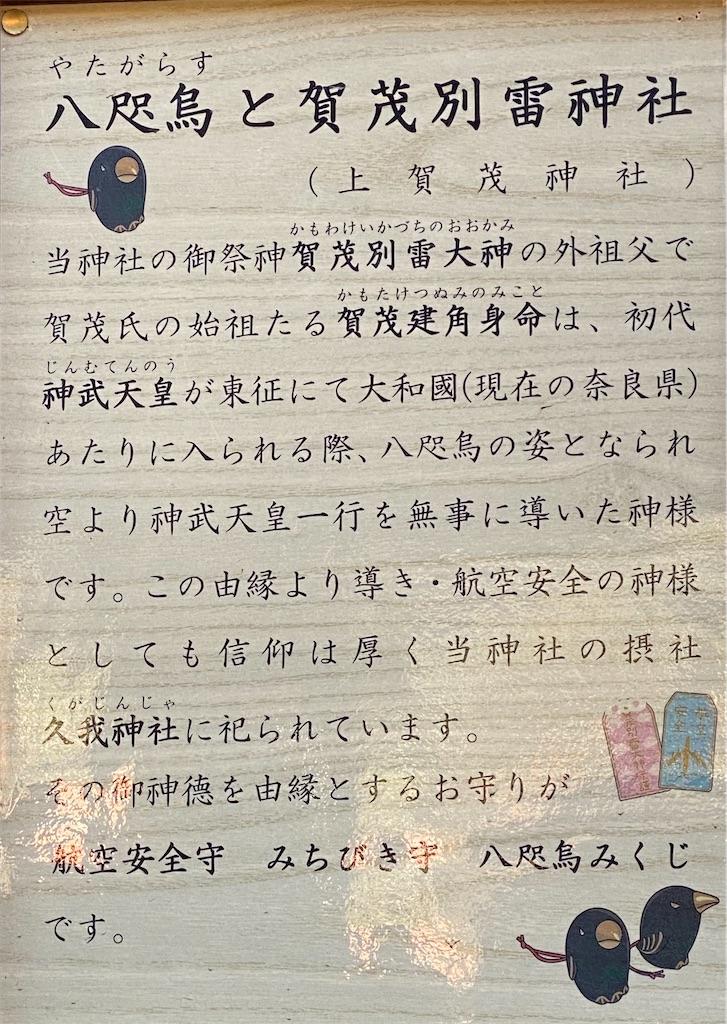 やたがらす
八咫烏と賀茂別雷神社
(上賀茂神社)
かもわけいかづちのおおかみ
当神社の御祭神賀茂別雷大神の外祖父で
かもたけつぬみのみこと
賀茂氏の始祖たる賀茂建角身命は、初代
じんむてんのう
神武天皇が東征にて大和國(現在の奈良県)
あたりに入られる際、八咫烏の姿となられ
空より神武天皇一行を無事に導いた神様
です。この由縁より導き・航空安全の神様
としても信仰は厚く当神社の摂社
くがじんじゃ
久我神社に祀られています。
その御神徳を由縁とするお守りが
航空安全守 みちびき守 八咫烏みくじ
です。